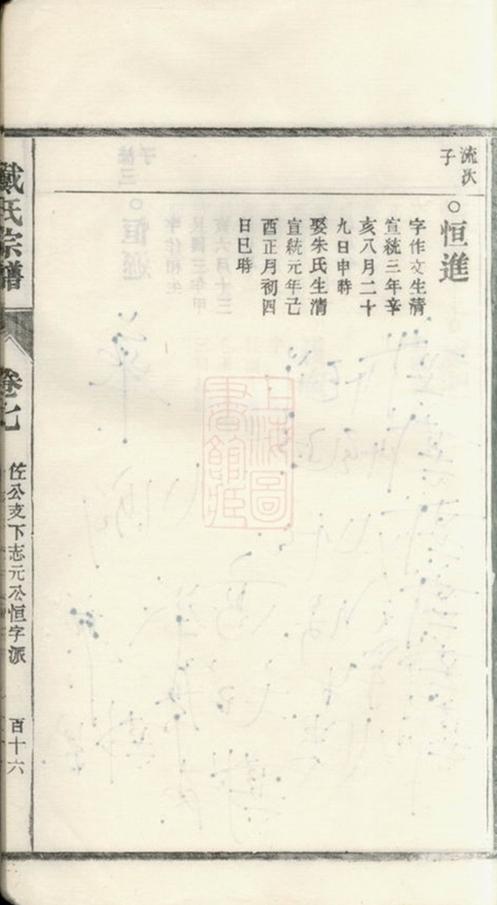 流次
子
○恒進
字作文生清
宣統三年辛
亥八月二十
九日申時
娶朱氏生清
宣統元年己
酉正月初四
日巳時
戴氏宗譜
卷七
佐公支下志元公恒字派
百十六
上海圖
書館藏